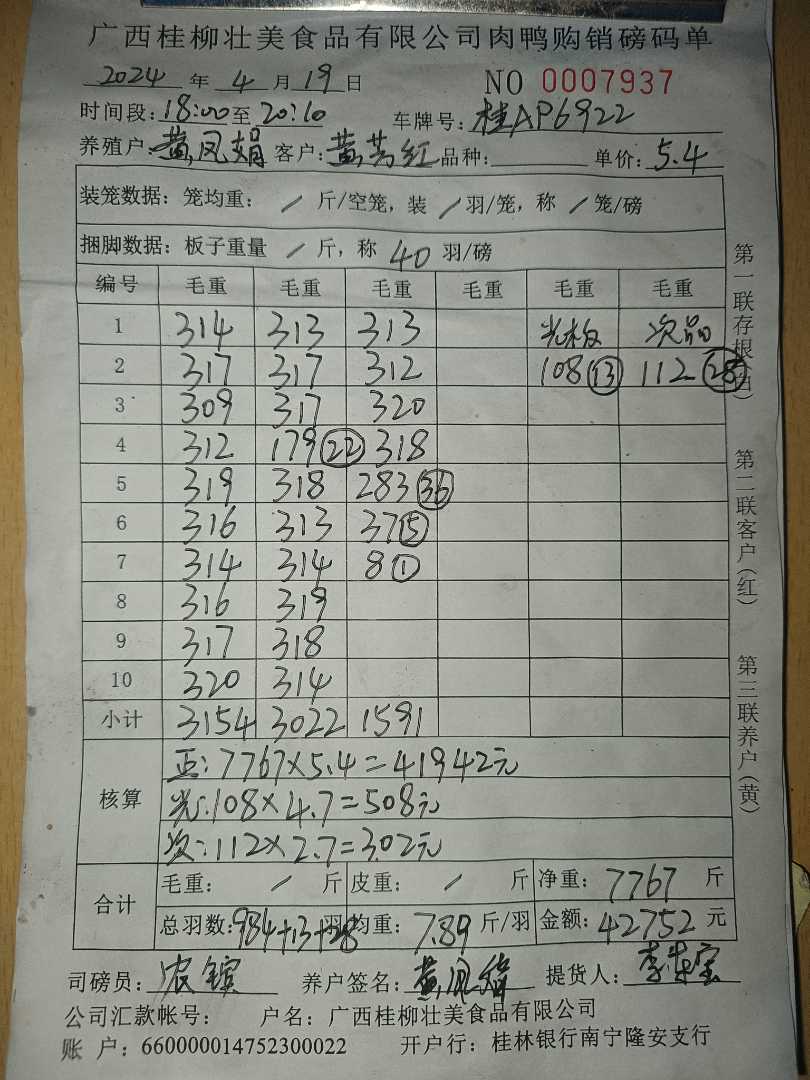 广西桂柳壮美食品有限公司肉鸭购销磅码单
2024 年 4 月 19 日 NO 0007937
时间段: 18:00 至 20:10 车牌号: 桂AP6922
养殖户: 黄凤娟 客户: 黄芳红 品种: 单价: 5.4
装笼数据: 笼均重: / 斤/空笼, 装 / 羽/笼, 称 / 笼/磅
捆脚数据: 板子重量 / 斤, 称 40 羽/磅
编号 毛重 毛重 毛重 毛重 毛重 毛重
1 314 313 313 光板 次品
2 317 317 312 108 13 112 28
3 309 317 320
4 312 179 22 318
5 319 318 283 36
6 316 313 37 5
7 314 314 8 1
8 316 319
9 317 318
10 320 314
小计 3154 3022 1591
核算 正: 7767×5.4=41942元
光: 108×4.7=508元
次: 112×2.7=302元
合计 毛重: / 斤 皮重: / 斤 净重: 7767 斤
总羽数: 984+13+28 羽 均重: 7.89 斤/羽 金额: 42752 元
司磅员: 农镔 养户签名: 黄凤娟 提货人:
公司汇款帐号: 户名: 广西桂柳壮美食品有限公司
账户: 660000014752300022 开户行: 桂林银行南宁隆安支行
第一联存根(白) 第二联客户(红) 第三联养户(黄)